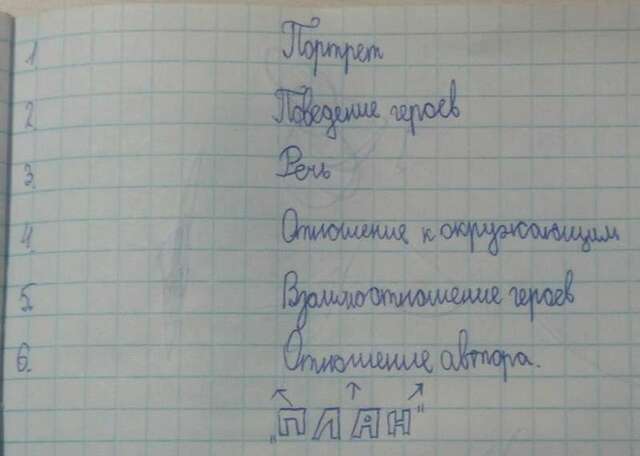 1 Портрет
2 Поведение героев
3. Речь
4. Отношение к окружающим
5. Взаимоотношение героев
6. Отношение автора.
„ПЛАН"